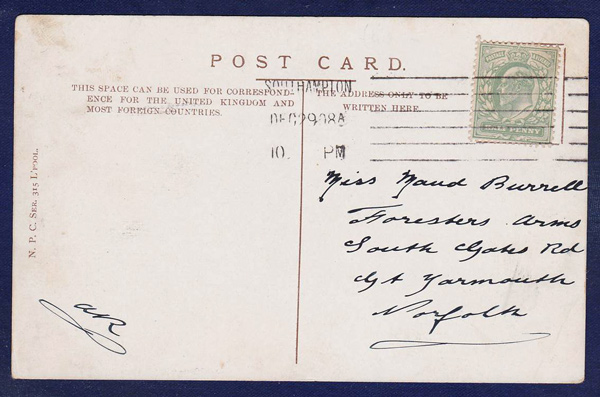 POST CARD.
THIS SPACE CAN BE USED FOR CORRESPOND-
ENCE FOR THE UNITED KINGDOM AND
MOST FOREIGN COUNTRIES.
THE ADDRESS ONLY TO BE
WRITTEN HERE.
SOUTHAMPTON
DEC 29 08A
10. PM
HALF PENNY
Miss Maud Burrell
Foresters Arms
South Gates Rd
Gt Yarmouth
Norfolk
N. P. C. SER. 315 L'POOL.